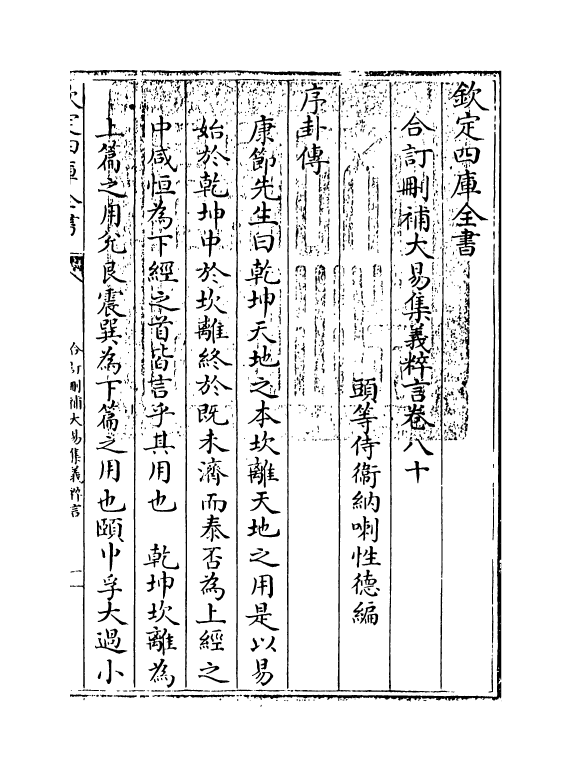 欽定四庫全書
合訂刪補大易集義粹言卷八十
頭等侍衞納喇性德編
序卦傳
康節先生曰乾坤天地之本坎離天地之用是以易
始於乾坤中於坎離終於既未濟而泰否為上經之
中咸恒為下經之首皆言乎其用也　乾坤坎離為
上篇之用兌艮震巽為下篇之用也頤中孚大過小
欽定四庫全書
合訂刪補大易集義粹言
一